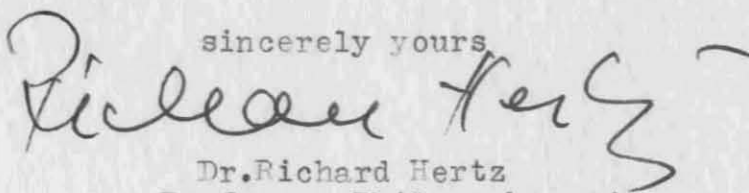 sincerely yours
Richard Hertz
Dr.Richard Hertz